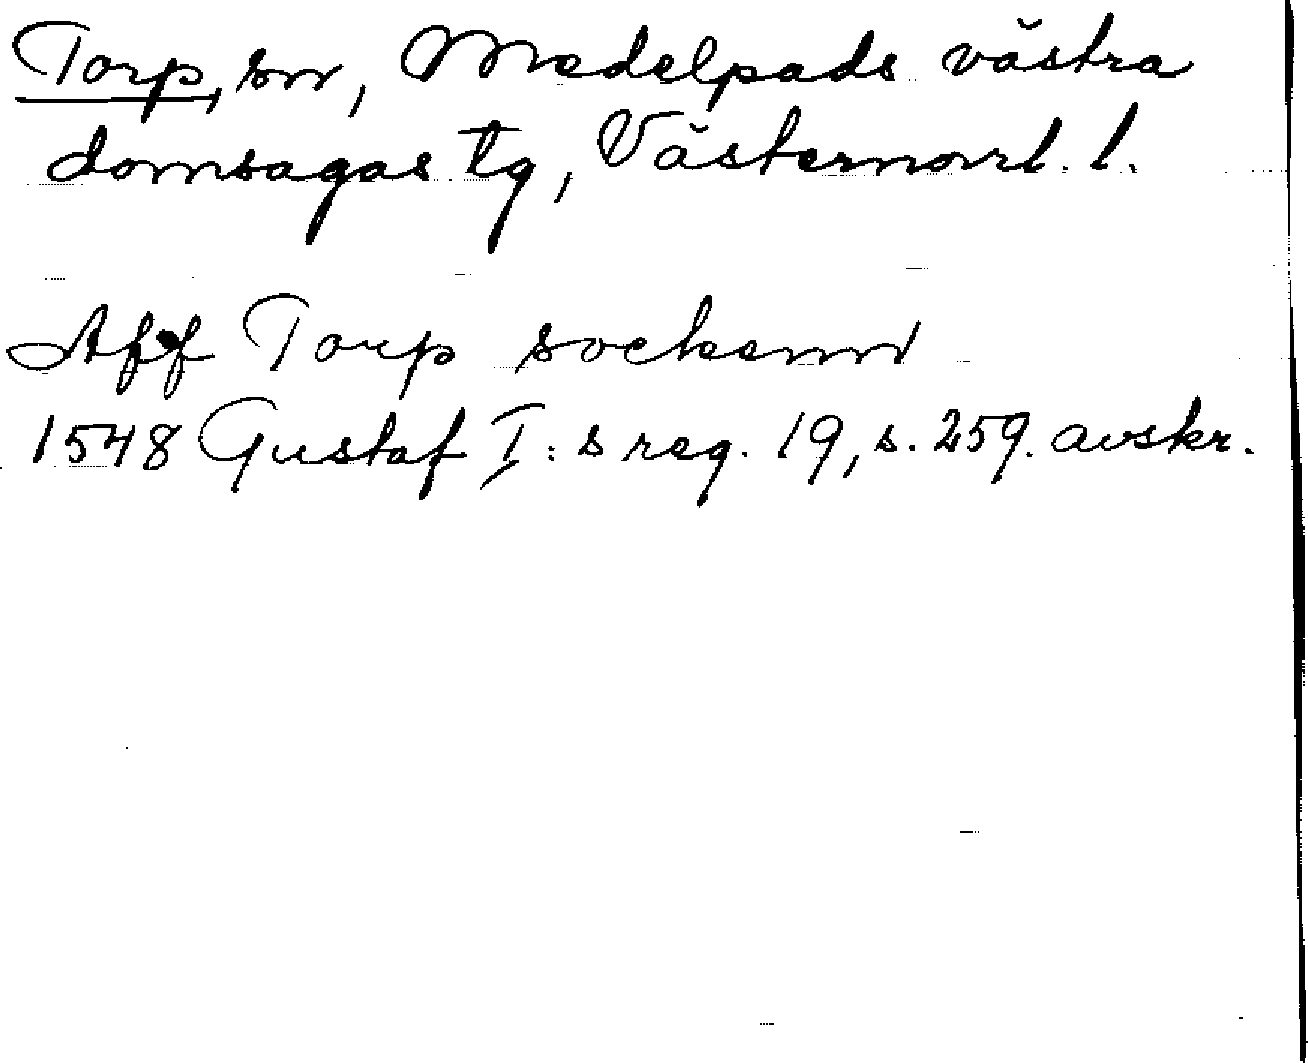 Torp, sn, Medelpads västra
domsagas tg, Västernorrl. l.
Aff Torp sockenn
1548 Gustaf I:s reg. 19, s. 259. avskr.